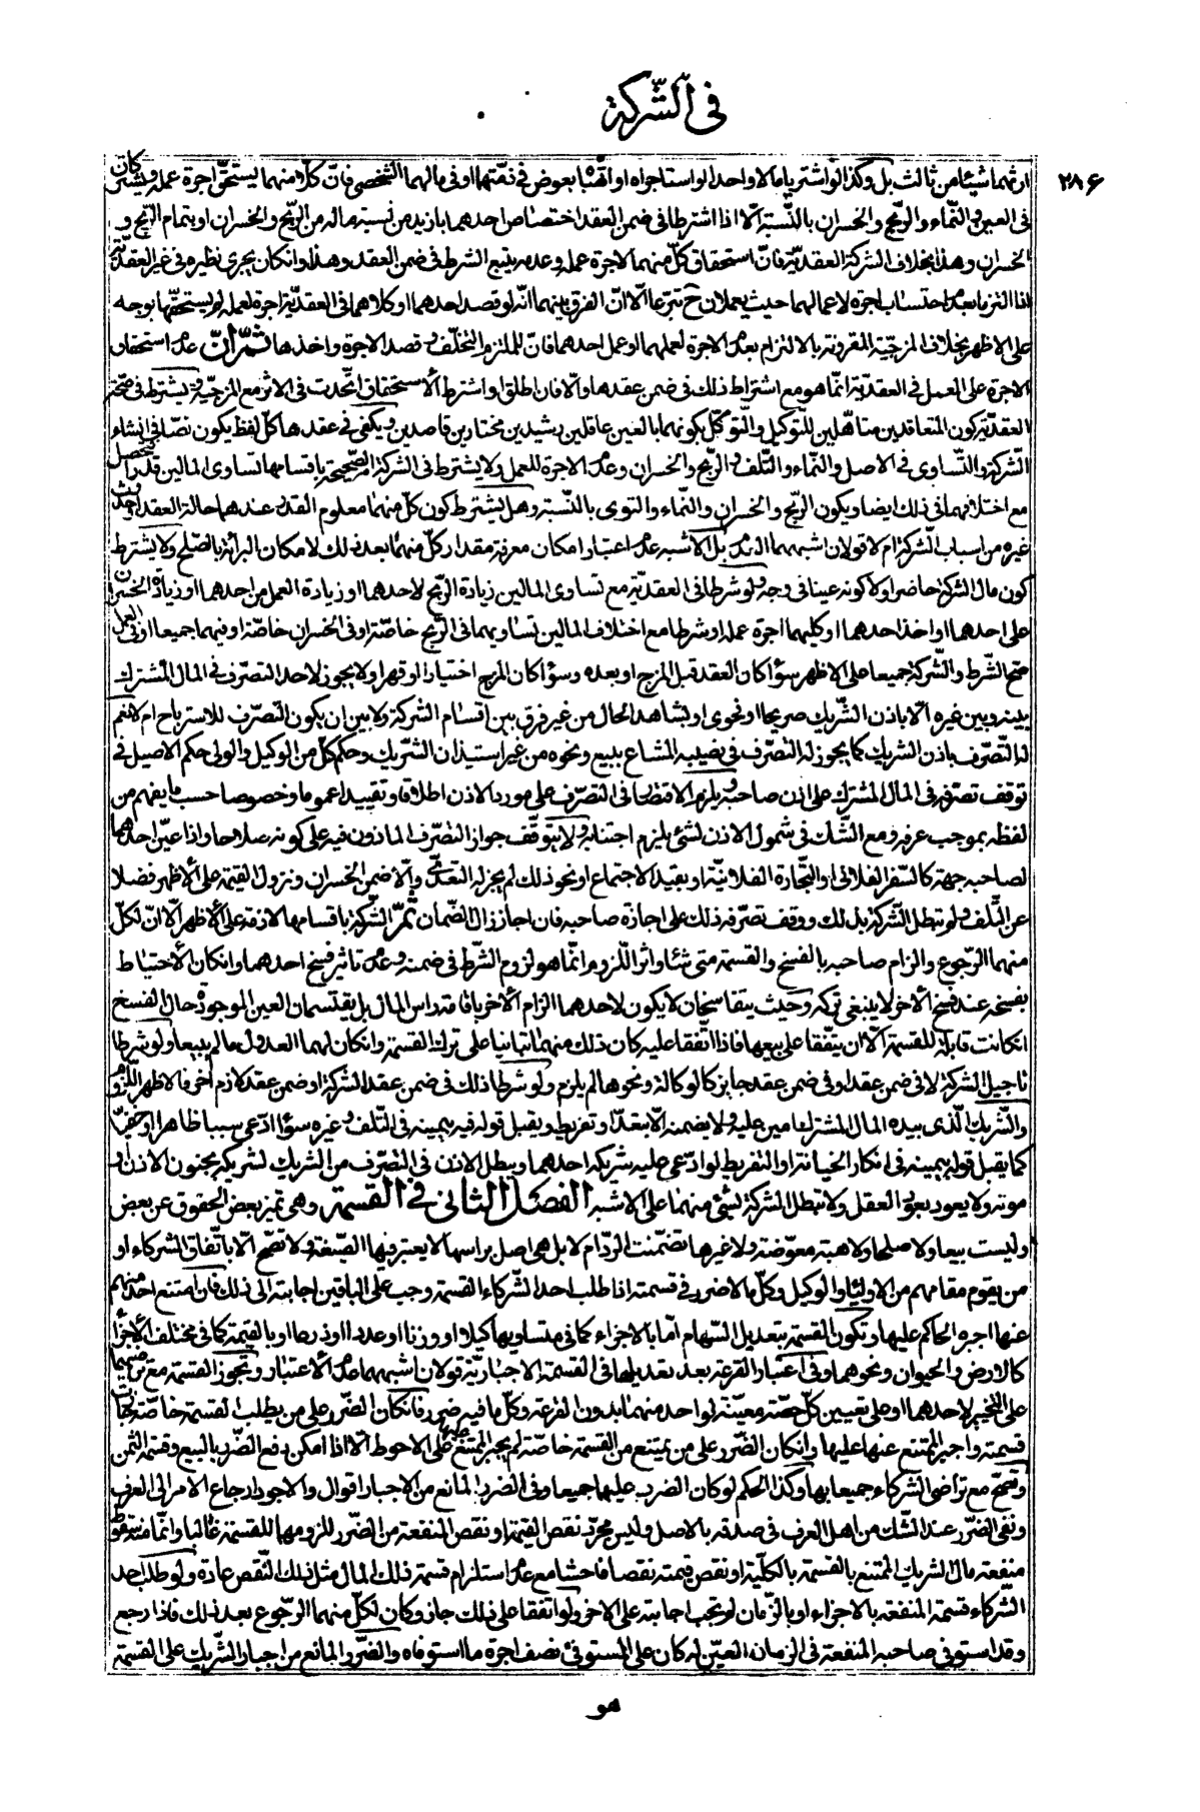 في الشركة
٢٨۶
ارثهما شيئا من ثالث بل وكذا لو اشتريا مالا واحدا لو استاجراه او اتهبا بعوض في ذمتهما او في مالهما الشخصي فان كلا منهما يستحق اجرة عمله ويشتركان
في العين والنماء والربح والخسران بالنسبة الا اذا اشترطا في ضمن العقد اختصاص احدهما بازيد من نسبة ماله من الربح والخسران او بتمام الربح و
الخسران وهذا بخلاف الشركة العقدية فان استحقاق كل منهما لاجرة عمله وعدمه يتبع الشرط في ضمن العقد وهذا وانكان يجري نظيره في غير العقدية
اذا التزما بعدم احتساب اجرة لاعمالهما حيث يعملان ح تبرعا الا ان الفرق بينهما انه لو قصد احدهما او كلاهما في العقدية اجرة لعمله لم يستحقها بوجه
على الاظهر بخلاف المزجية المقرونة بالالتزام بعدم الاجرة لعملهما او عمل احدهما فان للملتزم التخلف وقصد الاجرة واخذها ثم ان عدم استحقاق
الاجرة على العمل في العقدية انما هو مع اشتراط ذلك في ضمن عقدها والا فان اطلق او اشترط الاستحقاق اتحدت في الاثر مع المزجية ويشترط في صحة
العقدية كون المتعاقدين متاهلين للتوكيل والتوكل بكونهما بالغين عاقلين رشيدين مختارين قاصدين ويكفي في عقدها كل لفظ يكون نصا في انشاء
الشركة والتساوى في الاصل والنماء والتلف والربح والخسران وعدم الاجرة للعمل ولا يشترط في الشركة الصحيحة باقسامها تساوى المالين قدرا فتحصل
مع اختلافهما في ذلك ايضا ويكون الربح والخسران والنماء والتوى بالنسبة وهل يشترط كون كل منهما معلوم القدر عندهما حالة العقد او حدوث
غيره من اسباب الشركة ام لا قولان اشبههما العدم بل الاشبه عدم اعتبار امكان معرفة مقدار كل منهما بعد ذلك لامكان البرائة بالصلح ولا يشترط
كون مال الشركة حاضرا ولا كونه عينا في وجه ولو شرطا في العقدية مع تساوى المالين زيادة الربح لاحدهما او زيادة العمل من احدهما او زيادة الخسران
على احدهما او اخذ احدهما او كليهما اجرة عمله او شرطا مع اختلاف المالين تساويهما في الربح خاصة او في الخسران خاصة او فيهما جميعا او في العمل
صح الشرط والشركة جميعا على الاظهر سواء كان العقد قبل المزج او بعده وسواء كان المزج اختيارا او قهرا ولا يجوز لاحد التصرف في المال المشترك
بينه وبين غيره الا باذن الشريك صريحا او فحوى او بشاهد الحال من غير فرق بين اقسام الشركة ولا بين ان يكون التصرف للاسترباح ام لا نعم
له التصرف باذن الشريك كما يجوز له التصرف في نصيبه المشاع ببيع ونحوه من غير استيذان الشريك وحكم كل من الوكيل والولى حكم الاصيل في
توقف تصرفه في المال المشترك على اذن صاحبه ويلزم الاقتصار في التصرف على مورد الاذن اطلاقا وتقييدا عموما وخصوصا حسب ما يفهم من
لفظه بموجب عرفه ومع الشك في شمول الاذن لشئ يلزم اجتنابه ولا يتوقف جواز التصرف الماذون فيه على كونه صلاحا واذا عين احدهما
لصاحبه جهة كالسفر الفلانى او التجارة الفلانية او بقيد الاجتماع او نحو ذلك لم يجز له التعدى والا ضمن الخسران ونزول القيمة على الاظهر فضلا
عن التلف ولم تبطل الشركة بذلك ووقف تصرفه ذلك على اجازة صاحبه فان اجاز زال الضمان ثم الشركة باقسامها لازمة على الاظهر الا ان لكل
منهما الرجوع والزام صاحبه بالفسخ والقسمة متى شاء واثر اللزوم انما هو لزوم الشرط في ضمنه وعدم تاثير فسخ احدهما وانكان الاحتياط
بفسخه عند فسخ الاخر لا ينبغى تركه وحيث يتفاسخان لا يكون لاحدهما الزام الاخر باقامة راس المال بل يقتسمان العين الموجودة حال الفسخ
انكانت قابلة للقسمة الا ان يتفقا على بيعها فاذا اتفقا عليه كان ذلك منهما تبانيا على ترك القسمة وانكان لهما العدول ما لم يبيعا ولو شرطا
تاجيل الشركة لا في ضمن عقد او في ضمن عقد جايز كالوكالة ونحوها لم يلزم ولو شرطا ذلك في ضمن عقد الشركة او ضمن عقد لازم آخر فالاظهر اللزوم
والشريك الذى بيده المال المشترك امين عليه ولا يضمنه الا بتعد او تفريط ويقبل قوله فيه بيمينه في التلف وغيره سواء ادعى سببا ظاهرا او خفيا
كما يقبل قوله بيمينه في انكار الخيانة او التفريط لو ادعى عليه شريكه احدهما ويبطل الاذن في التصرف من الشريك لشريكه بجنون الاذن او
موته ولا يعود بعود العقل ولا تبطل الشركة لشئ منهما على الاشبه الفصل الثانى في القسمة وهى تميز بعض الحقوق عن بعض
وليست بيعا ولا صلحا ولا هبة معوضة ولا غيرها تضمنت الرد ام لا بل هى اصل براسها لا يعتبر فيها الصيغة ولا تصح الا باتفاق الشركاء او
من يقوم مقامهم من الاولياء والوكيل وكل ما لا ضرر في قسمته اذا طلب احد الشركاء القسمة وجب على الباقين اجابته الى ذلك فان امتنع احد منهم
عنها اجبره الحاكم عليها وتكون القسمة بتعديل السهام اما بالاجزاء كما في متساويها كيلا او وزنا او عددا او ذرعا او بالقيمة كما في مختلف الاجزاء
كالارض والحيوان ونحوهما وفى اعتبار القرعة بعد تعديلها في القسمة الاجبارية قولان اشبههما عدم الاعتبار وتجوز القسمة مع تراضيهما
على التخيير لاحدهما او على تعيين كل حصة معينة لواحد منهما بدون القرعة وكل ما فيه ضرر فانكان الضرر على من يطلب القسمة خاصة جاز
قسمته واجبر الممتنع عنها عليها وانكان الضرر على من يمتنع من القسمة خاصة لم يجبر الممتنع عليها على الاحوط الا اذا امكن دفع الضرر بالبيع وقسمة الثمن
وتصح مع تراضى الشركاء جميعا بها وكذا الحكم لو كان الضرر عليها جميعا وفى الضرر المانع من الاجبار اقوال والاجود ارجاع الامر الى العرف
ونفى الضرر عند الشك من اهل العرف في صدقه بالاصل وليس مجرد نقص القيمة او نقص المنفعة من الضرر للزومها للقسمة غالبا وانما منه سقوط
منفعة مال الشريك الممتنع بالقسمة بالكلية او نقص قيمته نقصا فاحشا مع عدم استلزام قسمة ذلك المال مثل ذلك النقص عادة ولو طلب احد
الشركاء قسمة المنفعة بالاجزاء او بالزمان لم تجب اجابته على الاخر ولو اتفقا على ذلك جاز وكان لكل منهما الرجوع بعد ذلك فاذا رجع
وقد استوفى صاحبه المنفعة في الزمان المعين له كان على المستوفى نصف اجرة ما استوفاه والضرر المانع من اجبار الشريك على القسمة
هو